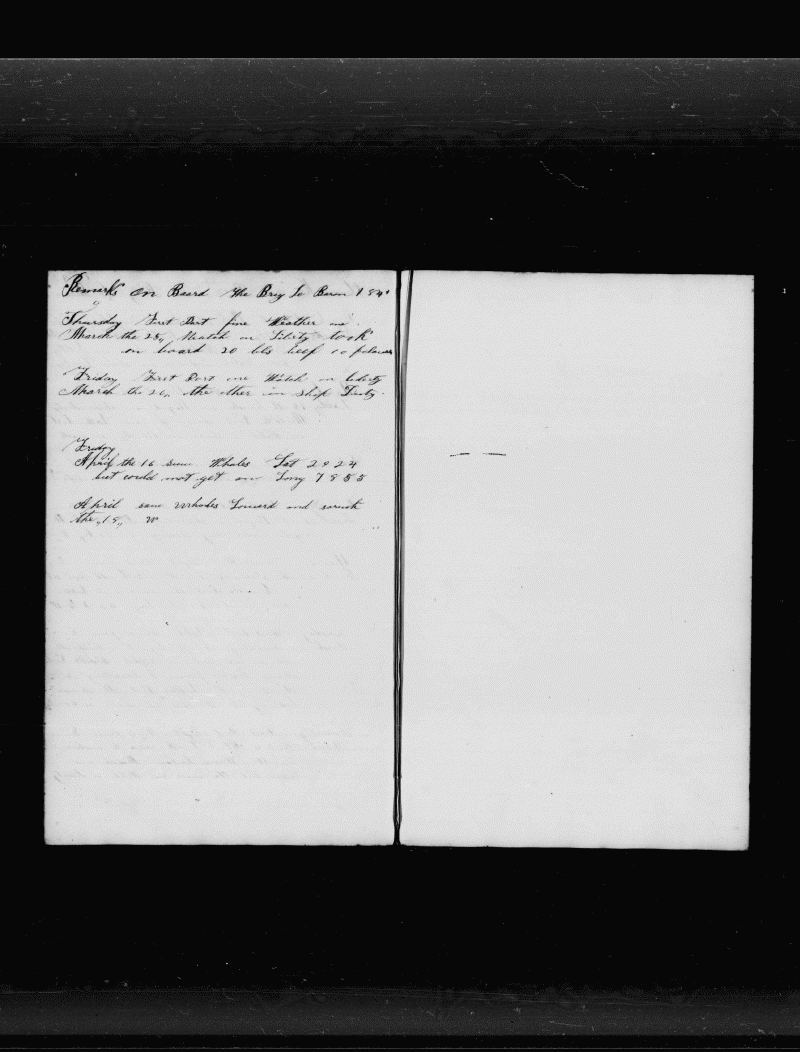 Remarks on Board the Brig Le Baron 184
Thursday First Part fine Weather one
March the 25,, Watch on Liberty took
on board 20 bls beef 10 of
Friday First Part one Watch on liberty
March the 26,, the other on Ship Duty
Friday
April the 16 saw Whales Lat 2924
but could not get on Long 7855
April saw Whales Lowerd and
the ,,19,, W